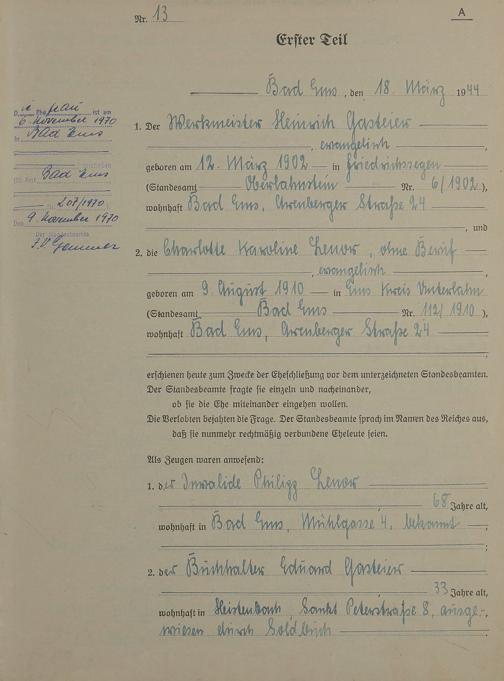 Nr. 13
A
Erster Teil
Bad Ems, den 18. März 1944
1. Der Werkmeister Heinrich Gasteier
, evangelisch
geboren am 12. März 1902 in Friedrichssegen
(Standesamt Oberlahnstein Nr. 6/1902),
wohnhaft Bad Ems, Arenberger Straße 24
, und
2. die Charlotte Karoline Lenor, ohne Beruf
, evangelisch
geboren am 9. August 1910 in Ems Kreis Unterlahn
(Standesamt Bad Ems Nr. 112/1910),
wohnhaft Bad Ems, Arenberger Straße 24
erschienen heute zum Zwecke der Eheschließung vor dem unterzeichneten Standesbeamten.
Der Standesbeamte fragte sie einzeln und nacheinander,
ob sie die Ehe miteinander eingehen wollen.
Die Verlobten bejahten die Frage. Der Standesbeamte sprach im Namen des Reiches aus,
daß sie nunmehr rechtmäßig verbundene Eheleute seien.
Als Zeugen waren anwesend:
1. der Invalide Philipp Lenor
68 Jahre alt,
wohnhaft in Bad Ems, Mühlgasse 4, bekannt
;
2. der Buchhalter Eduard Gasteier
33 Jahre alt,
wohnhaft in Heistenbach, Sankt Peterstraße 8, ausge-
wiesen durch Soldbuch
Die Ehefrau ist am
6. November 1970
in Bad Ems
Bad Ems
207/1970
Den 9. November 1970
Der Standesbeamte